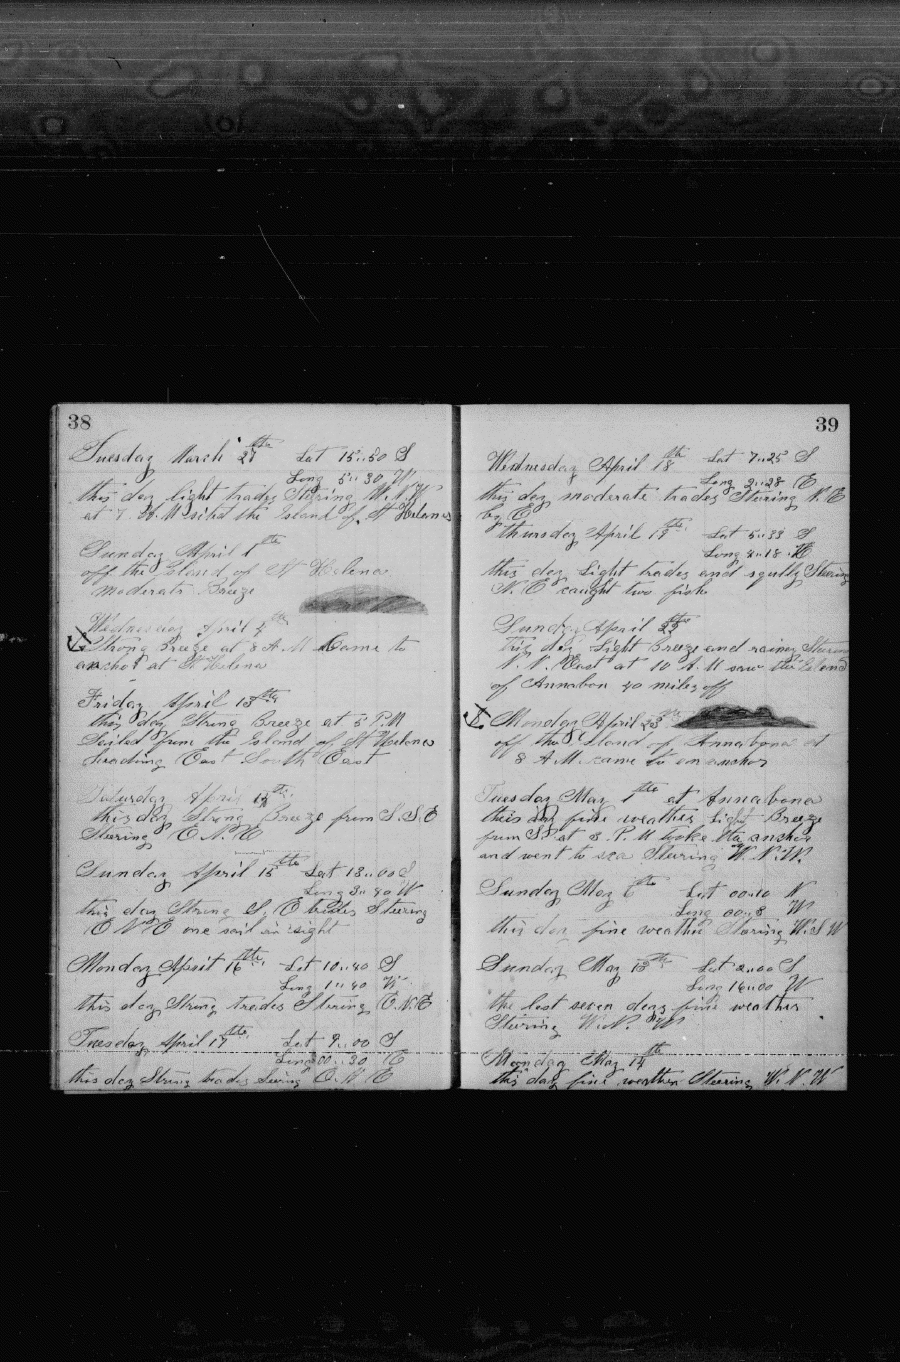 38
Tuesday March 27th Lat 15..50 S
Long 5..30 W
this day light trades Stering W.N.W
at 7 A.M sited the Island of St Helena
Sunday April 1th
off the Island of St Helena
Moderate Breeze
Wednesday April 4th
Strong Breeze at 8 A.M Came to
anchor at St Helena
Friday April 13th
this day Strong Breeze at 5 P.M
Sailed from the Island of St Helena
heading East South East
Saturday April 14th
this day Strong Breeze from S.S.E
Stering E.N.E
Sunday April 15th Lat 13..00 S
Long 3..40 W
this day Strong S. E trades Steering
E N.E one sail in sight
Monday April 16th Lat 10..40 S
Long 1..40 W
this day Strong trades Stering E.N.E
Tuesday April 17th Lat 9..00 S
Long 00..30 E
this day Strong trades E. N E
39
Wednesday April 18th Lat 7..25 S
Long 2..28 E
this day moderate trades Stering N.E
by E
thursday April 19th Lat 5..33 S
Long 4..18 E
this day Light trades and sqully Stering
N.E caught two fish
Sunday April 22
this day Light Breeze and rainey Stering
N.N.East at 10 A.M saw the Island
of Annabon 40 miles off
Monday April 23th
off the Island of Annabona at
8 A.M. came to an anchor
Tuesday May 1th at Annabona
this day fine weather Light Breeze
from at 3 P.M took the anchor
and went to sea Steering W.N.W.
Sunday May 6th Lat 00..10 N
Long 00..8 W
this day fine weather Stering W.S W
Sunday May 13th Lat 2..00 S
Long 16..00 W
the last seven days fine weather
Stering W.N.W
Monday May 14th
this day fine weather Steering W. N. W